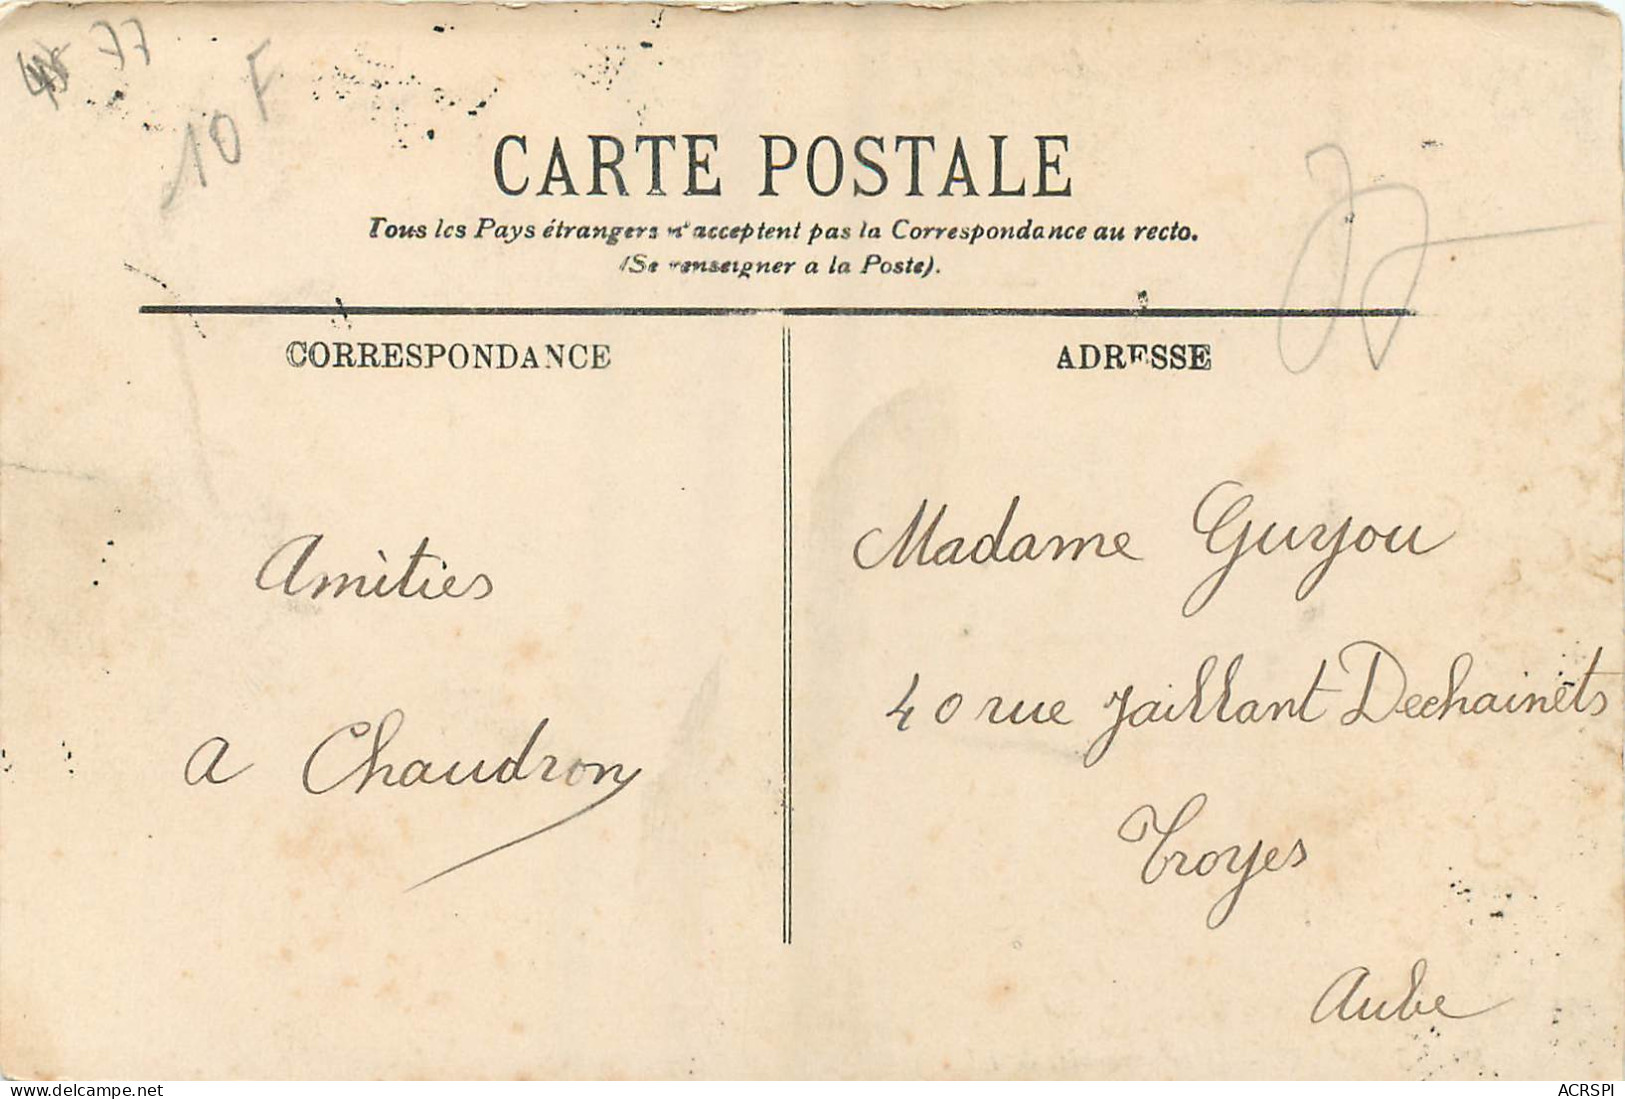 77
10 F
CARTE POSTALE
Tous les Pays étrangers n'acceptent pas la Correspondance au recto.
(Se renseigner a la Poste).
CORRESPONDANCE
ADRESSE
Amìties
a Chaudron
Madame Guyou
40 rue Jaillant Dechainèts
Troyes
Aube
www.delcampe.net
ACRSPI